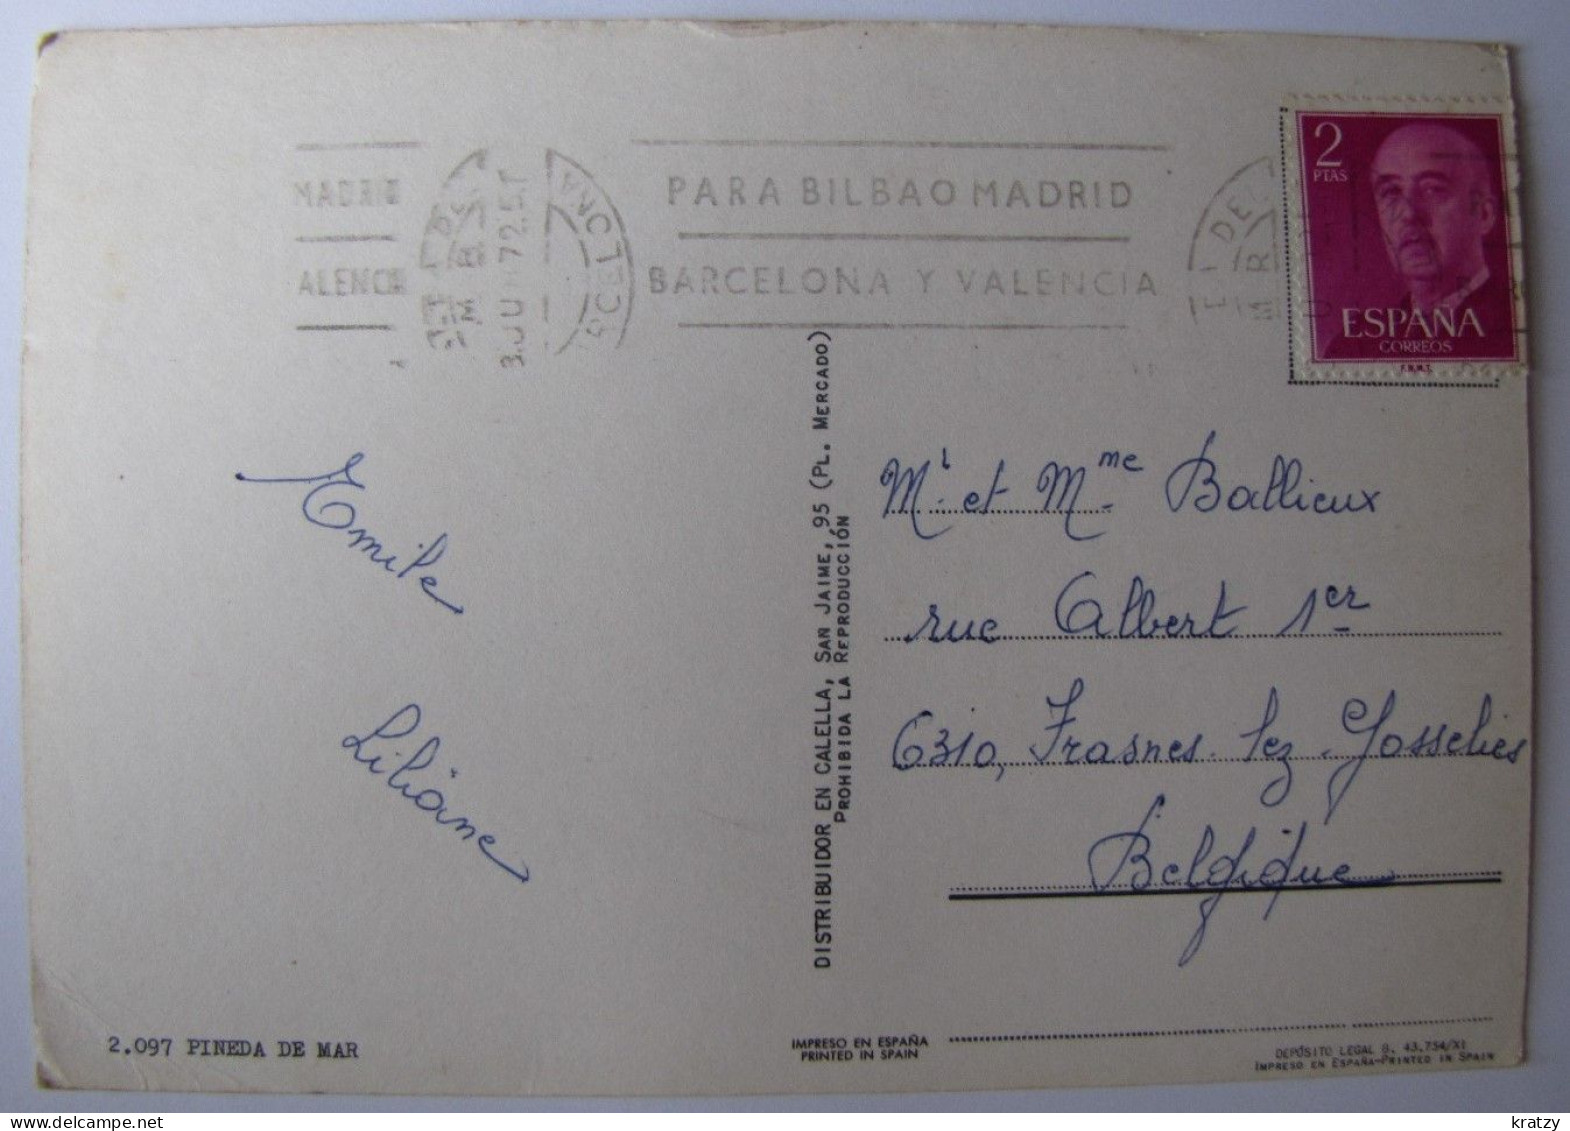 MADRID
ALENCIA
PARA BILBAO MADRID
BARCELONA Y VALENCIA
2
PTAS
ESPAÑA
CORREOS
F.N.M.T.
Emile
Liliane
DISTRIBUIDOR EN CALELLA, SAN JAIME, 95 (PL. MERCADO)
PROHIBIDA LA REPRODUCCIÓN
Mr et Mme Ballieux
rue Albert 1er
6310, Frasnes-lez-Gosselies
Belgique
2.097 PINEDA DE MAR
IMPRESO EN ESPAÑA
PRINTED IN SPAIN
DEPÓSITO LEGAL B. 43.754/XI
IMPRESO EN ESPAÑA-PRINTED IN SPAIN
kratzy